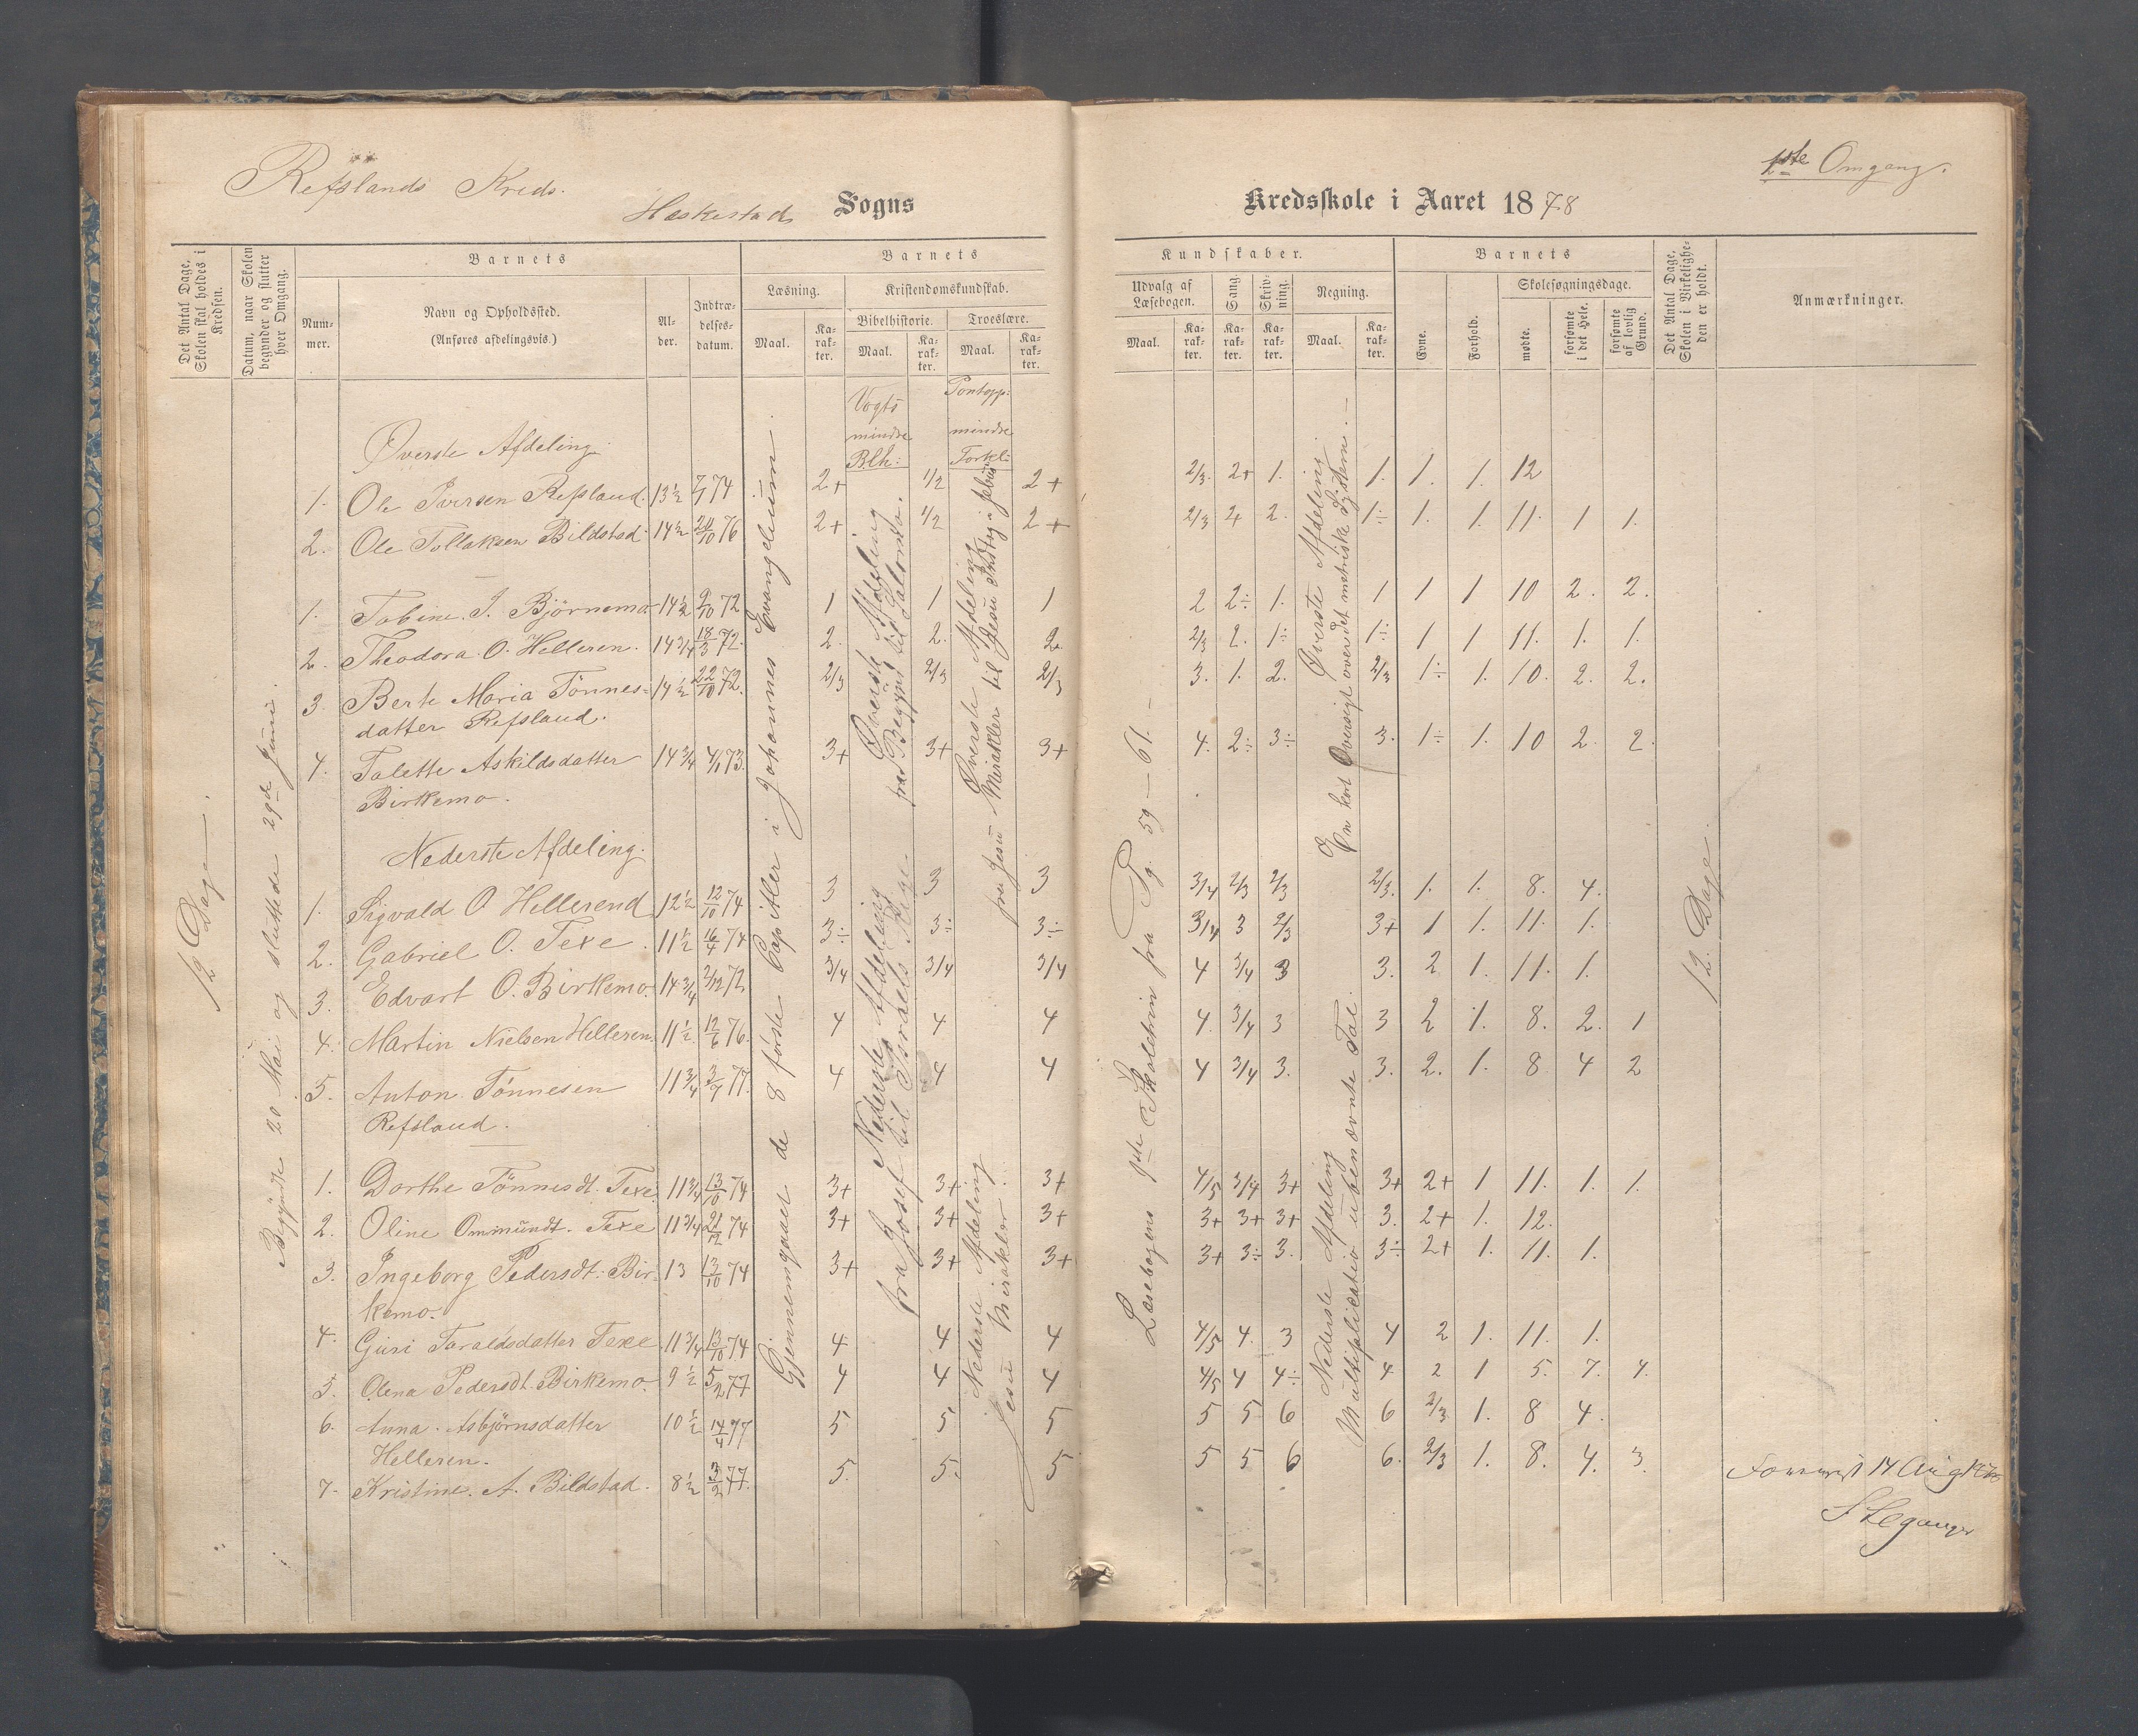 Refslands Kreds.
Heskestad Sogns
Kredsskole i Aaret 1878
1ste Omgang.
Det Antal Dage, Skolen skal holdes i Kredsen.
Datum, naar Skolen begynder og slutter hver Omgang.
Barnets
Nummer.
Navn og Opholdssted.
(Anføres afdelingsvis.)
Alder.
Indtrædelsesdatum.
Barnets
Læsning.
Maal.
Karakter.
Kristendomskundskab.
Bibelhistorie.
Maal.
Karakter.
Troeslære.
Maal.
Karakter.
Kundskaber.
Udvalg af Læsebogen.
Maal.
Karakter.
Sang.
Karakter.
Skrivning.
Karakter.
Regning.
Maal.
Karakter.
Barnets
Evne.
Forhold.
Skolesøgningsdage.
mødte.
forsømte i det Hele.
forsømte af lovlig Grund.
Det Antal Dage, Skolen i Virkeligheden er holdt.
Anmærkninger.
12 Dage
Begyndte 20 Mai og sluttede 29de Juni.
Gjennemgaaet de 8 første Capitler i Johannes Evangelium.
Vogts mindre Blh:
Pontopp: mindre Forkl:
Øverste Afdeling fra Begynd til Salomo.
Øverste Afdeling fra Jesu Mirakler til Jesu Indtog i Jebus
Nederste Afdeling fra Josef til Israels Rige
Nederste Afdeling Jesu Mirakler
Læsebogens 1ste Skoletrin fra Pg. 59 – 61. –
Øverste Afdeling
En kort Oversigt over det metriske System. –
Nederste Afdeling
Multiplicatio ubenævnte Tal.
12. Dage.
Øverste Afdeling.
1. Ole Iversen Refsland. 13½ 7/1 74 2+ 1/2 2+ 2/3. 2+ 1. 1. 1. 1. 12
2. Ole Tollaksen Bildstad. 14½ 24/10 76 2+ 1/2 2+ 2/3 2 2. 1÷ 1. 1. 11. 1 1.
1. Tobine. J. Björnemo 14½ 9/10 72 1 1 1 2 2÷ 1. 1 1 1 10 2. 2.
2. Theodora O. Helleren. 14 3/4 18/3 72. 2. 2. 2. 2/3 2. 1÷ 1÷ 1 1 11. 1. 1.
3. Berte Maria Tönnes= 14½ 22/10 72. 2/3 2/3 2/3 3. 1. 2. 2/3 1÷ 1. 10. 2. 2.
datter Refsland.
4. Talette Askildsdatter 14 3/4 4/1 73. 3+ 3+ 3+ 4. 2÷ 3÷ 3. 1÷ 1. 10 2. 2.
Birkemo.
Nederste Afdeling.
1. Sigvald O Hellerend 12½ 12/10 74 3 3 3 3/4 2/3 2/3 2/3. 1. 1. 8. 4.
2. Gabriel O. Texe. 11½ 16/4 74 3÷ 3÷ 3÷ 3/4 3 2/3 3+ 1 1. 11. 1.
3. Edvart O. Birkemo. 14 3/4 2/12 72 3/4 3/4 3/4 4 3/4 3 3. 2 1. 11. 1.
4. Martin Nielsen Helleren. 11½ 12/6 76. 4 4 4 4. 3/4 3 3 2 1. 8. 2. 1
5. Anton Tönnesen 11 3/4 3/7 77. 4 4 4 4 3/4 3. 3. 2. 1. 8 4 2
Refsland.
1. Dorthe Tönnesdt. Texe. 11 3/4 13/10 74 3+ 3+ 3+ 4/5 3/4 3+ 3+ 2+ 1 11. 1. 1.
2. Oline Ommundt. Texe 11 3/4 21/12 74 3+ 3+ 3+ 3+ 3+ 3+ 3. 2+ 1. 12.
3. Ingeborg Pedersdt. Bir- 13 13/10 74 3+ 3+ 3+ 3+ 3÷ 3. 3÷ 2+ 1. 11. 1.
kemo.
4. Guri Taraldsdatter Texe 11 3/4 13/10 74 4 4 4 4/5 4. 3 4 2 1. 11. 1.
5. Olena Pedersdt. Birkemo. 9½ 5/2 77 4 4 4 4/5 4 4÷ 4 2 1 5. 7. 4.
6. Anna. Asbjörnsdatter 10½ 14/4 77 5 5 5 5 5 6 6 2/3 1. 8 4.
Helleren.
7. Kristine. A. Bildstad. 8½ 3/2 77. 5. 5. 5 5 5 6 6. 2/3 1. 8. 4. 3.
14 Aug 1878